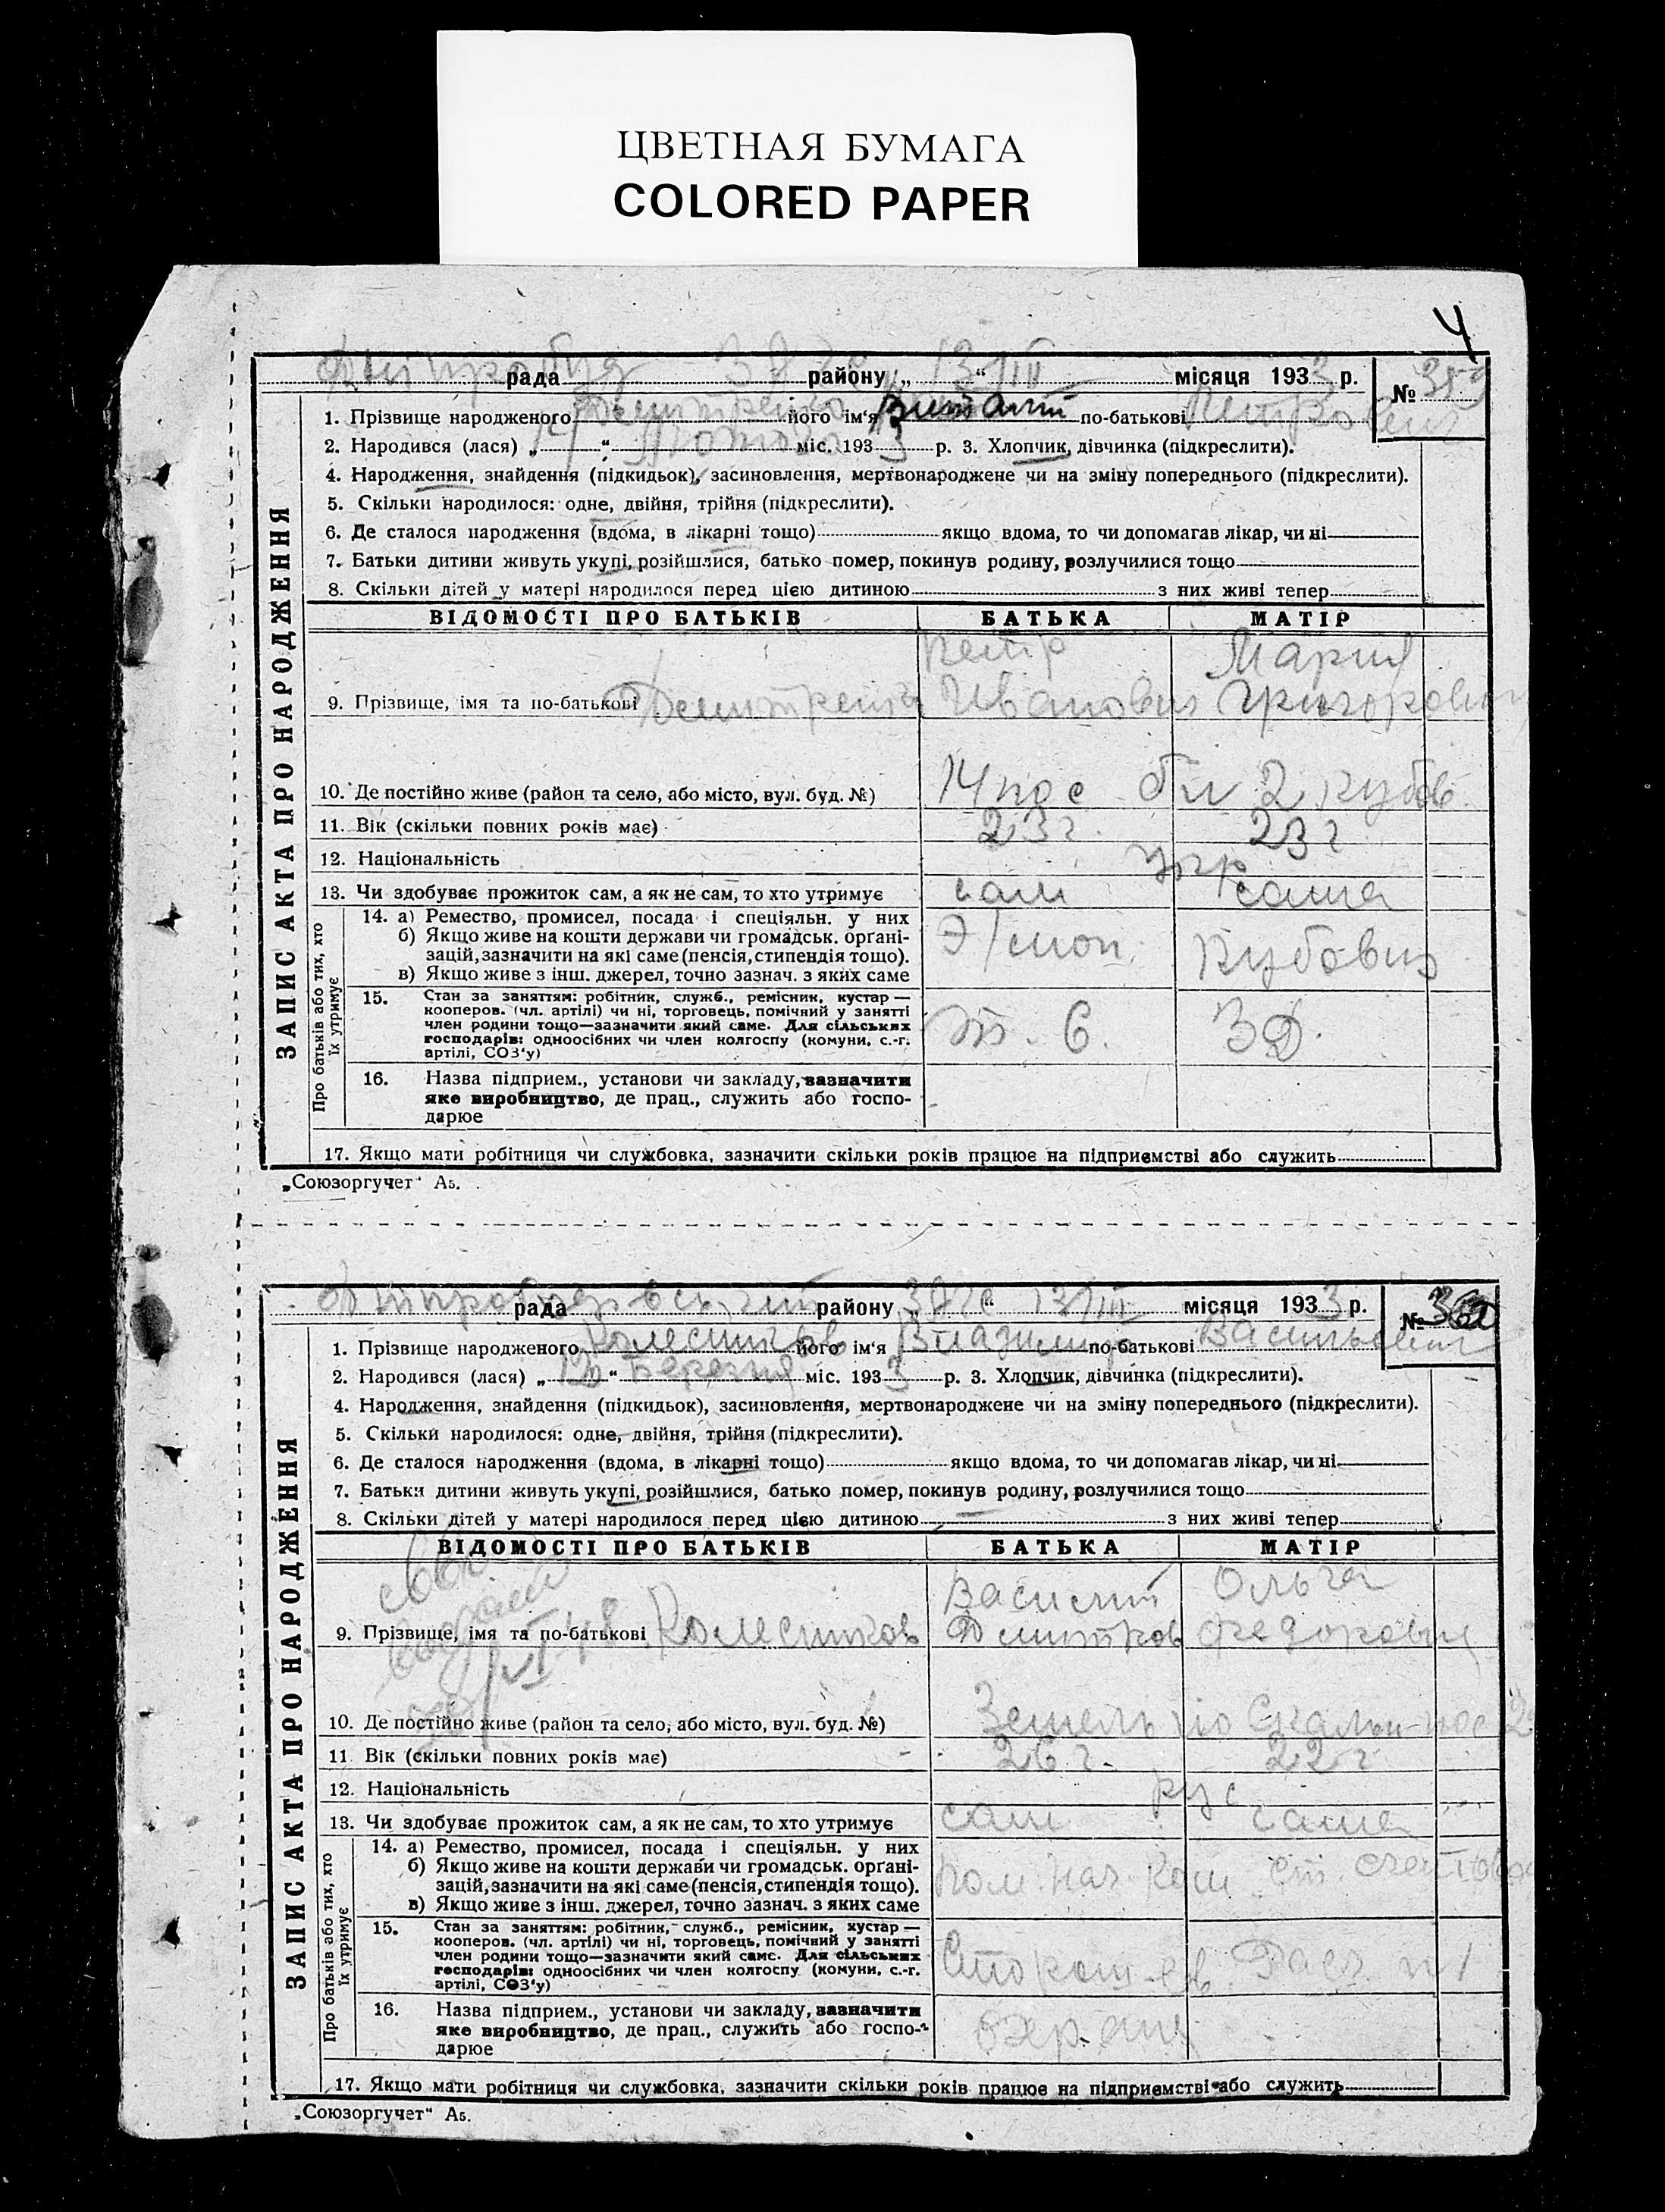 ЦВЕТНАЯ БУМАГА
COLORED PAPER
4
рада ЗАГС району „ 13/III “ місяця 1933 р. № 359
1. Прізвище народженого Дмитренко його ім‘я Виталий по-батькові Петрович
2. Народився (лася) „ “ Лютого міс. 1933 р. 3. Хлопчик, дівчинка (підкреслити).
4. Народження, знайдення (підкидьок), засиновлення, мертвонароджене чи на зміну попереднього (підкреслити).
5. Скільки народилося: одне, двійня, трійня (підкреслити).
6. Де сталося народження (вдома, в лікарні тощо) якщо вдома, то чи допомагав лікар, чи ні
7. Батьки дитини живуть укупі, розійшлися, батько помер, покинув родину, розлучилися тощо
8. Скільки дітей у матері народилося перед цією дитиною з них живі тепер
ЗАПИС АКТА ПРО НАРОДЖЕННЯ
ВІДОМОСТІ ПРО БАТЬКІВ БАТЬКА МАТІР
Петр Мария
9. Прізвище, імя та по-батькові Дмитренко Иванович Григоровн
10. Де постійно живе (район та село, або місто, вул. буд. №) 14 пос бл 2
11. Вік (скільки повних років має) 23 г. 23 г
12. Національність укр
13. Чи здобуває прожиток сам, а як не сам, то хто утримує сам сама
Про батьків або тих, хто їх утримує
14. а) Ремество, промисел, посада і спеціяльн. у них
б) Якщо живе на кошти держави чи громадськ. орґані-
зацій, зазначити на які саме (пенсія, стипендія тощо).
в) Якщо живе з інш. джерел, точно зазнач. з яких саме
Э/мон.
15. Стан за заняттям: робітник, служб., ремісник, кустар —
кооперов. (чл. артілі) чи ні, торговець, помічний у занятті
член родини тощо—зазначити який саме. Для сільських
господарів: одноосібних чи член колгоспу (комуни, с.-г.
артілі, СОЗ‘у)
16. Назва підприєм., установи чи закладу, зазначити
яке виробництво, де прац., служить або госпо-
дарює
17. Якщо мати робітниця чи службовка, зазначити скільки років працює на підприємстві або служить
„Союзоргучет“ А5.
рада району „ЗАГС “ 13/III місяця 1933 р. № 360
1. Прізвище народженого Колесников його ім‘я Владимир по-батькові Васильевич
2. Народився (лася) „ “ Березня міс. 1933 р. 3. Хлопчик, дівчинка (підкреслити).
4. Народження, знайдення (підкидьок), засиновлення, мертвонароджене чи на зміну попереднього (підкреслити).
5. Скільки народилося: одне, двійня, трійня (підкреслити).
6. Де сталося народження (вдома, в лікарні тощо) якщо вдома, то чи допомагав лікар, чи ні
7. Батьки дитини живуть укупі, розійшлися, батько помер, покинув родину, розлучилися тощо
8. Скільки дітей у матері народилося перед цією дитиною з них живі тепер
ЗАПИС АКТА ПРО НАРОДЖЕННЯ
ВІДОМОСТІ ПРО БАТЬКІВ БАТЬКА МАТІР
Василий Ольга
9. Прізвище, імя та по-батькові Колесников Дмитров Федоровн
10. Де постійно живе (район та село, або місто, вул. буд. №)
11. Вік (скільки повних років має) 26 г. 22 г
12. Національність рус
13. Чи здобуває прожиток сам, а як не сам, то хто утримує сам сама
Про батьків або тих, хто їх утримує
14. а) Ремество, промисел, посада і спеціяльн. у них
б) Якщо живе на кошти держави чи громадськ. орґані-
зацій, зазначити на які саме (пенсія, стипендія тощо).
в) Якщо живе з інш. джерел, точно зазнач. з яких саме
Пом. нач. ком ст. счетовод
15. Стан за заняттям: робітник, служб., ремісник, кустар —
кооперов. (чл. артілі) чи ні, торговець, помічний у занятті
член родини тощо—зазначити який саме. Для сільських
господарів: одноосібних чи член колгоспу (комуни, с.-г.
артілі, СОЗ‘у)
16. Назва підприєм., установи чи закладу, зазначити
яке виробництво, де прац., служить або госпо-
дарює
17. Якщо мати робітниця чи службовка, зазначити скільки років працює на підприємстві або служить
„Союзоргучет“ А5.